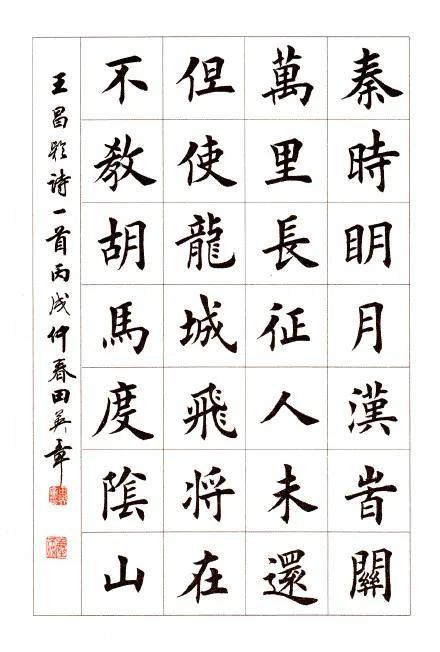 秦時眀月漢旹關
萬里長征人未還
但使龍城飛将在
不教胡馬度陰山
王昌齡詩一首丙戌仲春田英章